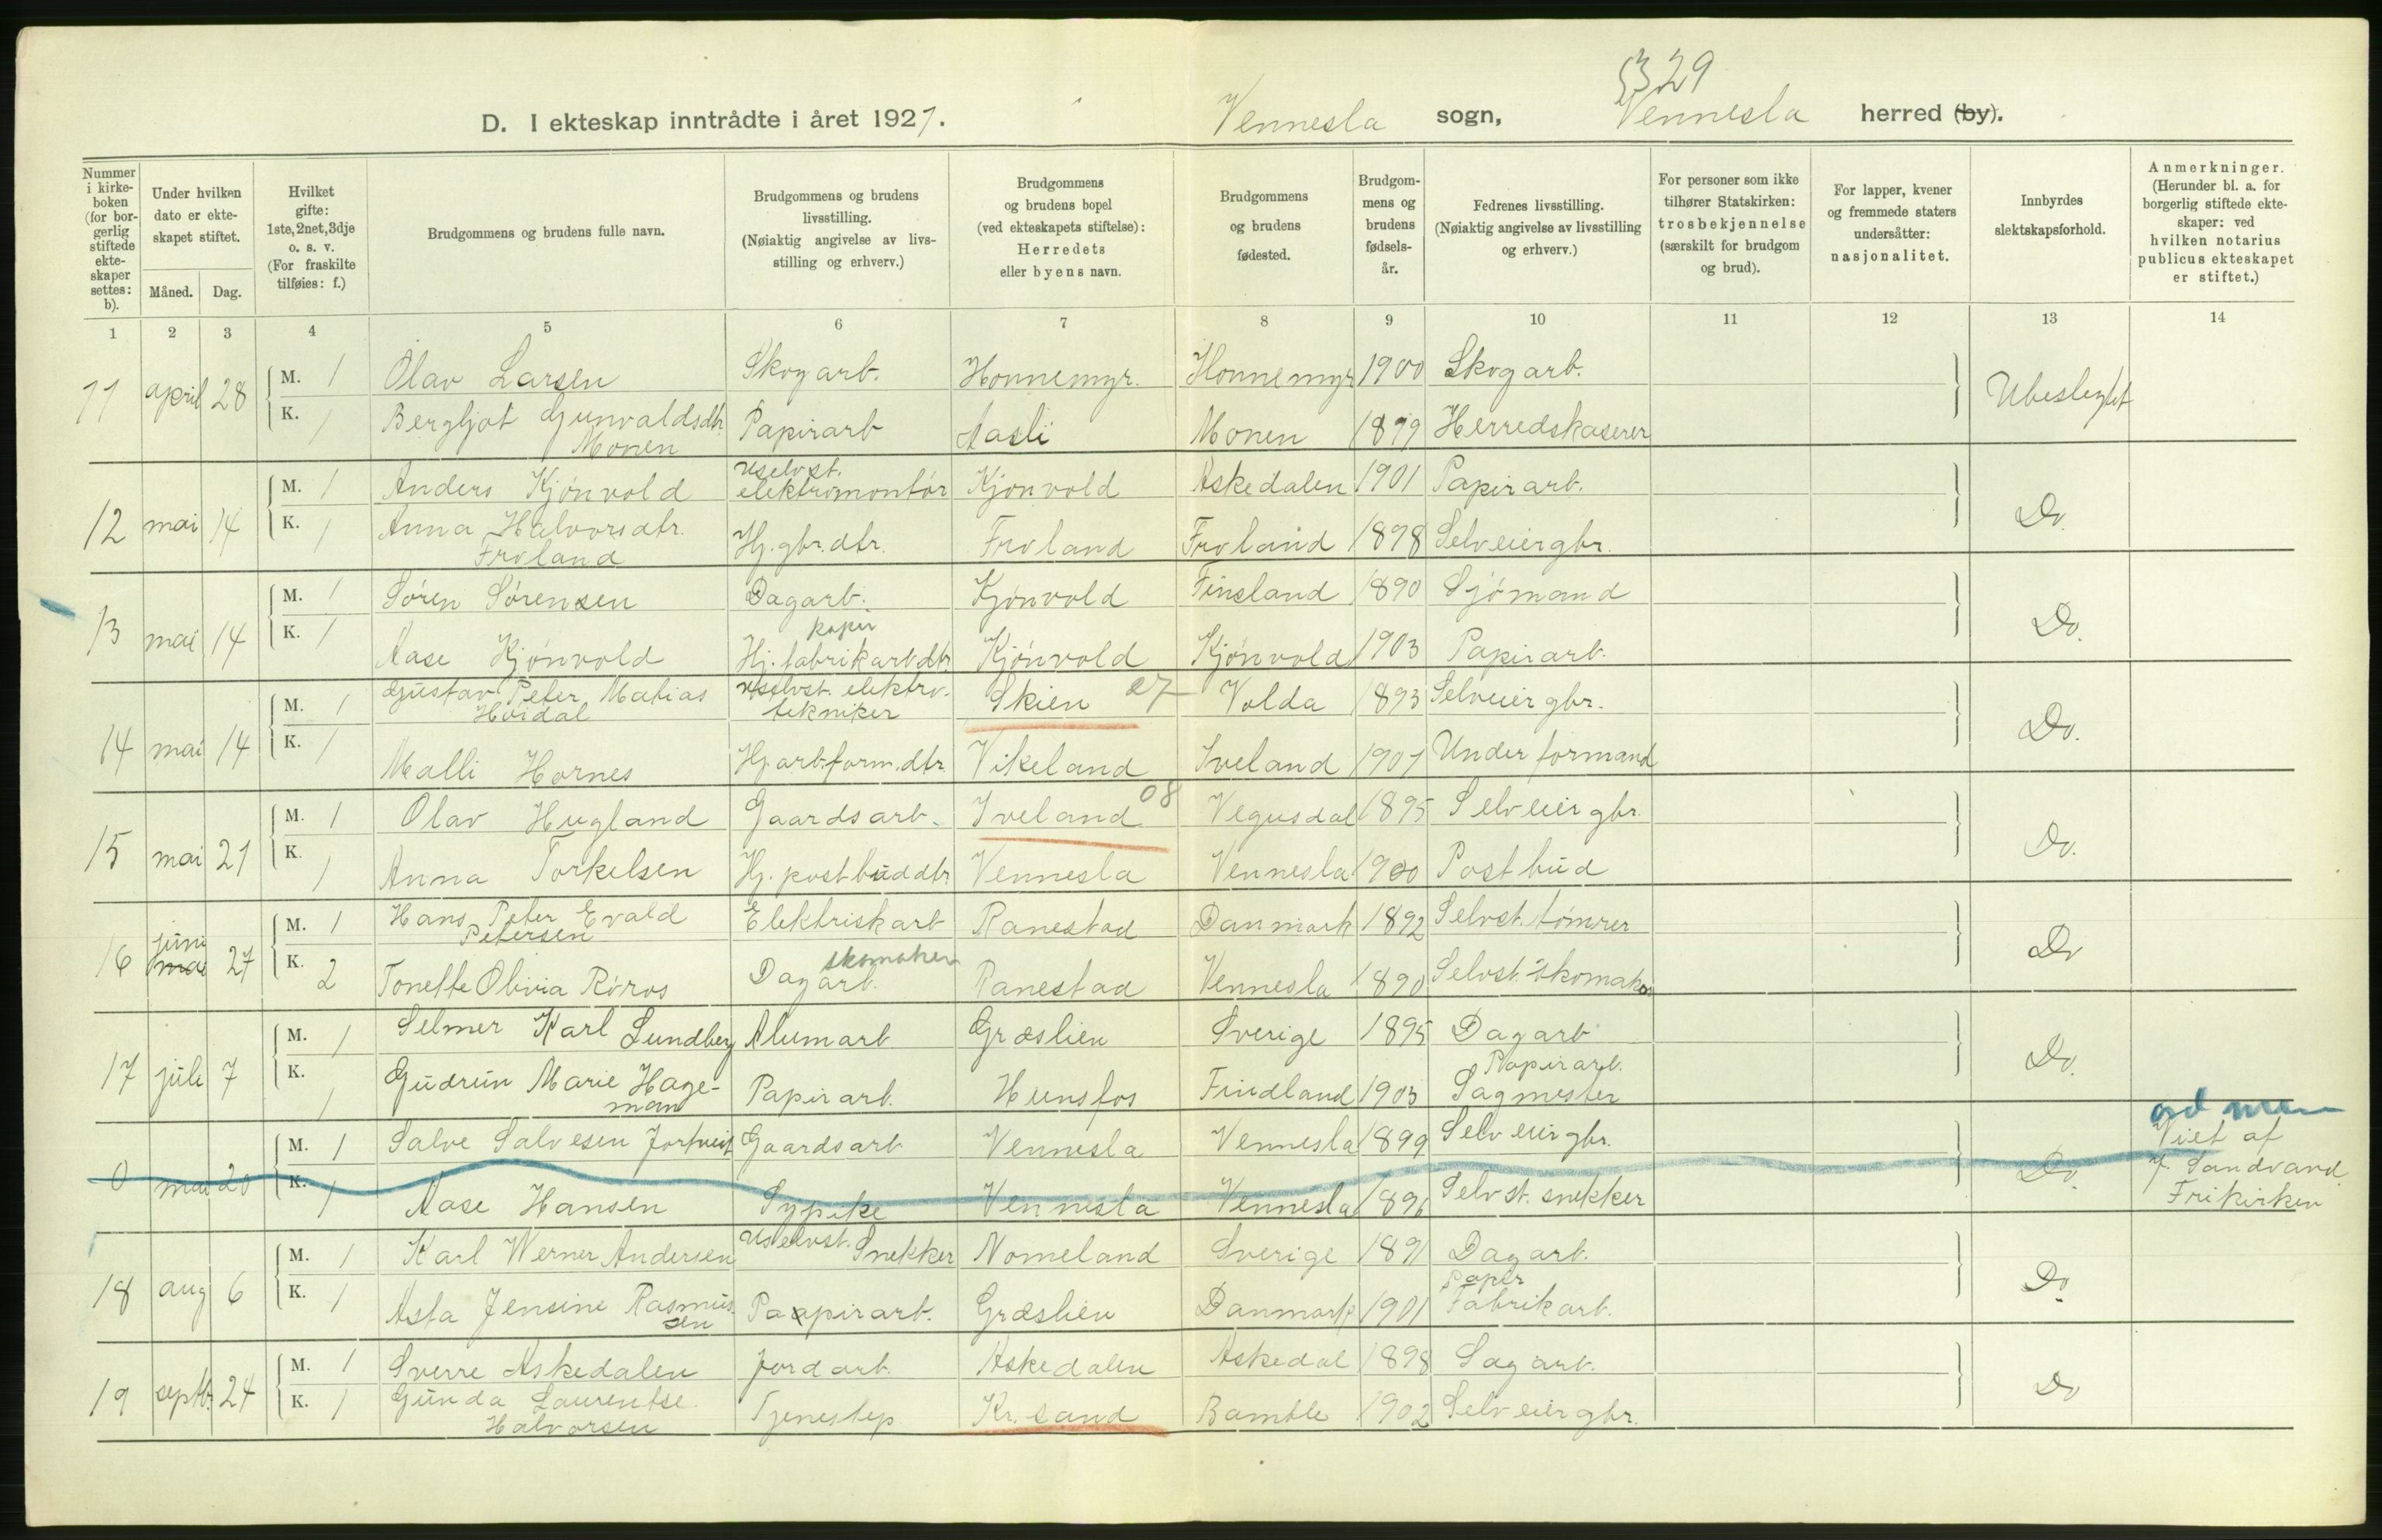 §3 29
D. I ekteskap inntrådte i året 1921. Vennesla sogn, Vennesla herred (by).
Nummer i kirkeboken (for borgerlig stiftede ekteskaper settes: b).
Under hvilken dato er ekteskapet stiftet.
Måned. Dag.
Hvilket gifte: 1ste, 2net, 3dje o. s. v. (For fraskilte tilføies: f.)
Brudgommens og brudens fulle navn.
Brudgommens og brudens livsstilling. (Nøiaktig angivelse av livsstilling og erhverv.)
Brudgommens og brudens bopel (ved ekteskapets stiftelse): Herredets eller byens navn.
Brudgommens og brudens fødested.
Brudgommens og brudens fødselsår.
Fedrenes livsstilling. (Nøiaktig angivelse av livsstilling og erhverv.)
For personer som ikke tilhører Statskirken: trosbekjennelse (særskilt for brudgom og brud).
For lapper, kvener og fremmede staters undersåtter: nasjonalitet.
Innbyrdes slektskapsforhold.
Anmerkninger. (Herunder bl. a. for borgerlig stiftede ekteskaper: ved hvilken notarius publicus ekteskapet er stiftet.)
1 2 3 4 5 6 7 8 9 10 11 12 13 14
11 april 28 M. 1 Olav Larsen Skogarb. Honnemyr. Honnemyr 1900 Skogarb. Ubeslegtet
K. 1 Bergljot Gunvaldsdtr. Monen Papirarb Aasli Monen 1899 Herredskaserer
12 mai 14 M. 1 Anders Kjønvold Uselvst. elektromontør Kjønvold Askedalen 1901 Papirarb. Do.
K. 1 Anna Halvorsdtr. Froland Hj. gbr. dtr. Froland Froland 1898 Selveiergbr.
13 mai 14 M. 1 Søren Sørensen Dagarb. Kjønvold Finsland 1890 Sjømand Do.
K. 1 Aase Kjønvold Hj. papir fabrikarb dtr Kjønvold Kjønvold 1903 Papirarb.
14 mai 14 M. 1 Gustav Peter Matias Høidal Uselvst. elektrotekniker Skien 27 Volda 1893 Selveiergbr. Do.
K. 1 Malli Hornes Hj arb.form.dtr. Vikeland Iveland 1901 Underformand
15 mai 21 M. 1 Olav Hugland Gaardsarb. Iveland 08 Vegusdal 1895 Selveiergbr. Do.
K. 1 Anna Torkelsen Hj. postbuddtr Vennesla Vennesla 1900 Postbud
16 juni mai 27 M. 1 Hans Peter Evald Petersen Elektriskarb Ranestad Danmark 1892 Selvst. tømrer Do
K. 2 Tonette Olivia Røros Dagarb. skomaker Ranestad Vennesla 1890 Selvst. skomaker
17 juli 7 M. 1 Selmer Karl Lundberg Alumarb Græslien Sverige 1895 Dagarb Do.
K. 1 Gudrun Marie Hageman Papirarb. Hunsfos Findland 1903 Papirarb. Sagmester
0 mai 20 M. 1 Salve Salvesen Gaardsarb Vennesla Vennesla 1899 Selveiergbr. Do. Viet af J. Sandvand Frikirken
K. 1 Aase Hansen Sypike Vennesla Vennesla 1896 Selvst. snekker
18 aug 6 M. 1 Karl Werner Andersen Uselvst. Snekker Nomeland Sverige 1891 Dagarb. Do.
K. 1 Asta Jensine Rasmussen Papirarb. Græslien Danmark 1901 Papir Fabrikarb.
19 septb. 24 M. 1 Sverre Askedalen Jordarb. Askedalen Askedal 1898 Sagarb. Do
K. 1 Gunda Laurentse Halvorsen Tjenestep. Kr. sand Bamble 1902 Selveiergbr.